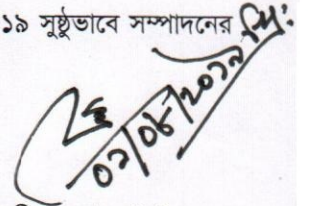 ১৯ সুষ্ঠুভাবে সম্পাদনের
০১/০৮/২০১৯